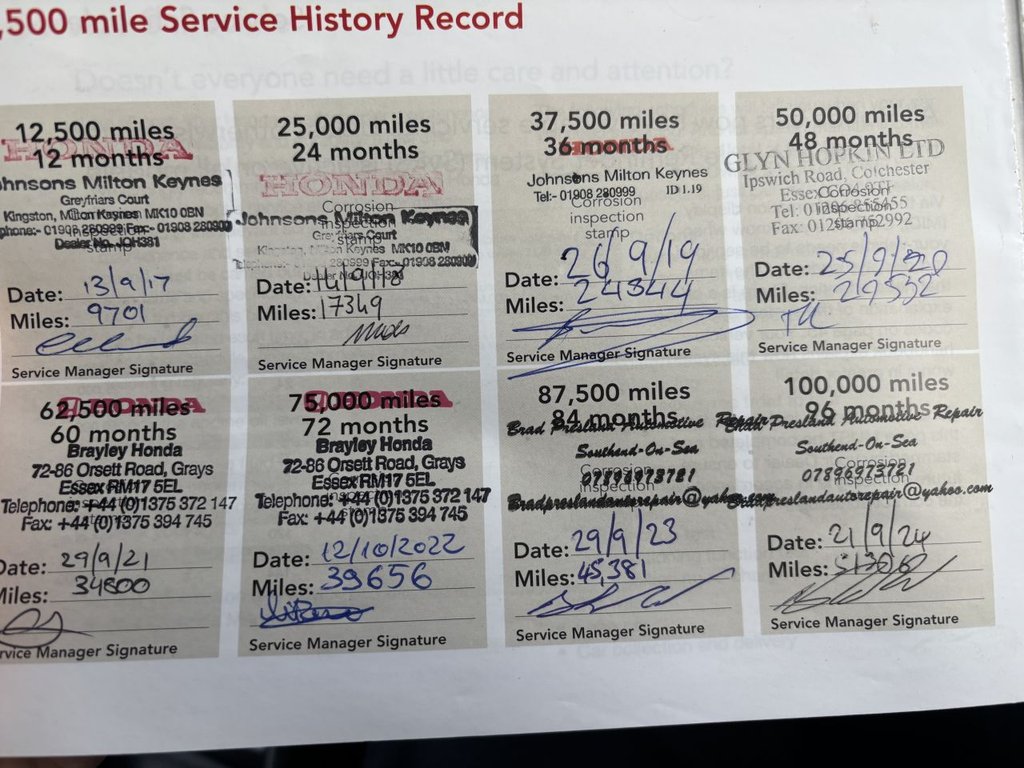 ,500 mile Service History Record
Doesn't everyone need a little care and attention?
12,500 miles
12 months
HONDA
Johnsons Milton Keynes
Greyfriars Court
Kingston, Milton Keynes MK10 0BN
phone:- 01908 280999 Fax:- 01908 280909
Dealer No. JOH381
stamp
Date: 13/9/17
Miles: 9701
Service Manager Signature
25,000 miles
24 months
HONDA
Corrosion
inspection
stamp
Johnsons Milton Keynes
Greyfriars Court
Kingston, Milton Keynes MK10 0BN
280999 Fax:- 01908 280909
Dealer No. JOH381
Date: 14/9/18
Miles: 17349
Service Manager Signature
37,500 miles
36 months
HONDA
Johnsons Milton Keynes
Tel:- 01908 280999 ID 1.19
Corrosion
inspection
stamp
Date: 26/9/19
Miles: 24344
Service Manager Signature
50,000 miles
48 months
GLYN HOPKIN LTD
Ipswich Road, Colchester
Essex
Corrosion
inspection
stamp
Tel:
Fax:
Date: 25/9/20
Miles: 29552
Service Manager Signature
62,500 miles
HONDA
60 months
Brayley Honda
72-86 Orsett Road, Grays
Essex RM17 5EL
Telephone: +44 (0)1375 372 147
Fax: +44 (0)1375 394 745
Date: 29/9/21
Miles: 34800
Service Manager Signature
75,000 miles
HONDA
72 months
Brayley Honda
72-86 Orsett Road, Grays
Essex RM17 5EL
Telephone: +44 (0)1375 372 147
Fax: +44 (0)1375 394 745
Date: 12/10/2022
Miles: 39656
Service Manager Signature
87,500 miles
84 months
Brad Presland Automotive Repair
Southend-On-Sea
Corrosion
07896973721
inspection
Bradpreslandautorepair@yahoo.com
Date: 29/9/23
Miles: 45,381
Service Manager Signature
100,000 miles
96 months
Brad Presland Automotive Repair
Southend-On-Sea
Corrosion
07896973721
inspection
Bradpreslandautorepair@yahoo.com
Date: 21/9/24
Miles:
Service Manager Signature